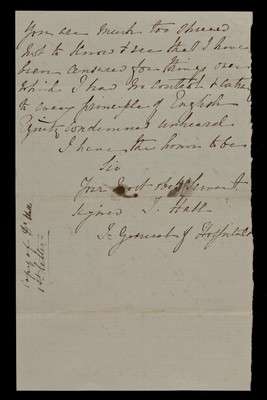 You are much too shrewd
not to know & see that I have
been censured for things over
which I had no control & contrary
to every principle of English
Justice condemned unheard.
I have the honor to be
Sir
Your Most obdt Servant
signed J. Hall
In General of Hospitals
Copy of Dr Hall
1st letter